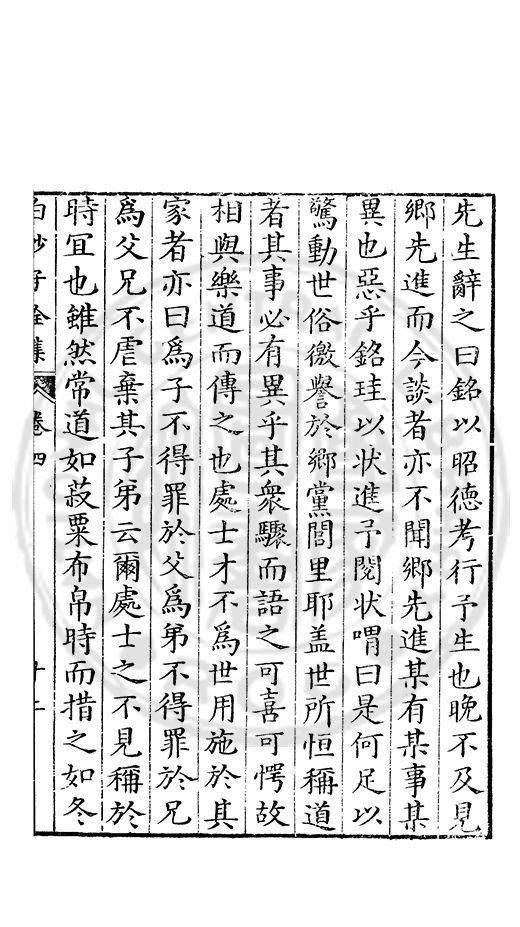 先生辭之曰銘以昭德考行予生也晚不及見
鄉先進而今談者亦不聞鄉先進某有某事某
異也惡乎銘珪以狀進予閱狀喟曰是何足以
驚動世俗徼譽於鄉黨閭里耶盖世所恒稱道
者其事必有異乎其衆驟而語之可喜可愕故
相與樂道而傳之也處士才不爲世用施於其
家者亦曰爲子不得罪於父爲弟不得罪於兄
爲父兄不虐棄其子弟云爾處士之不見稱於
時冝也雖然常道如菽粟布帛時而措之如冬
白沙子全集 卷四 十二